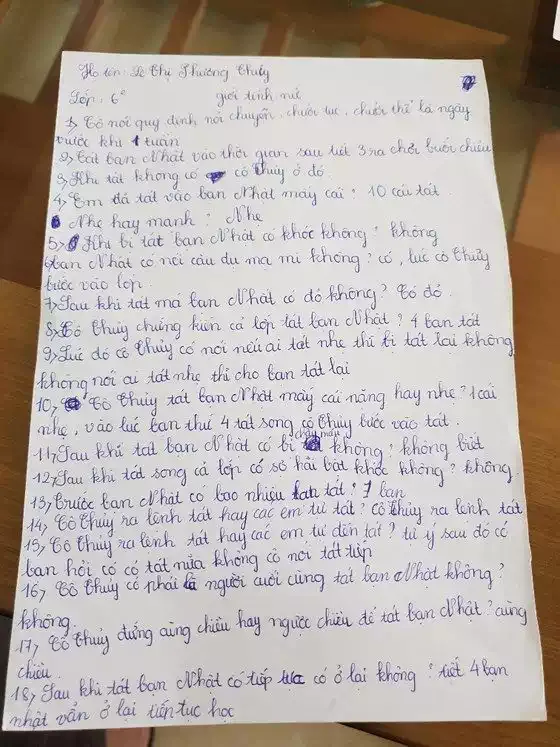 Họ tên: Lê Thị Phương Thúy
Lớp: 6² giới tính nữ
1, Cô nói quy định nói chuyện, chười tục, chười thề là ngày
trước khi 1 tuần
2, Tát bạn Nhật vào thời gian sau tiết 3 ra chơi buổi chiều
3, Khi tát không có cô Thủy ở đó
4, Em đã tát vào bạn Nhật mấy cái? 10 cái tát
Nhẹ hay mạnh? Nhẹ
5, Khi bị tát bạn Nhật có khóc không? không
6 bạn Nhật có nói câu đu ma mi không? có, lúc cô Thủy
bước vào lớp.
7, Sau khi tát má bạn Nhật có đỏ không? Có đỏ.
8, Cô Thủy chứng kiến cả lớp tát bạn Nhật? 4 bạn tát
9, Lúc đó cô Thủy có nói nếu ai tát nhẹ thì bị tát lại không
không nói ai tát nhẹ thì cho bạn tát lại
10, Cô Thủy tát bạn Nhật mấy cái nặng hay nhẹ? 1 cái
nhẹ, vào lúc bạn thứ 4 tát song cô Thủy bước vào tát.
11, Sau khi tát bạn Nhật có bị chảy máu không? không biết
12, Sau khi tát song cả lớp có sợ hãi bật khóc không? không
13, Trước bạn Nhật có bao nhiêu bạn tát? 7 bạn
14, Cô Thủy ra lệnh tát hay các em tự tát? cô Thủy ra lệnh tát
15, Cô Thủy ra lệnh tát hay các em tự đến tát? tự ý sau đó có
bạn hỏi cô có tát nữa không cô nói tát tiếp
16, Cô Thủy có phải là người cuối cùng tát bạn Nhật không?
không.
17, Cô Thủy đứng cùng chiều hay ngược chiều để tát bạn Nhật? cùng
chiều.
18, Sau khi tát bạn Nhật có tiếp tục có ở lại không? tiết 4 bạn
nhật vẫn ở lại tiếp tục học